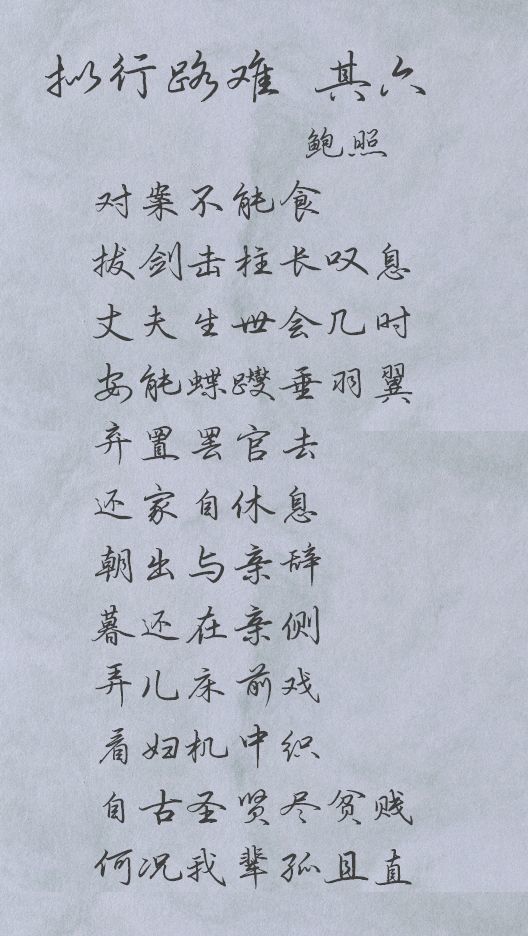 拟行路难 其六
鲍照
对案不能食
拔剑击柱长叹息
丈夫生世会几时
安能蝶躞垂羽翼
弃置罢官去
还家自休息
朝出与亲辞
暮还在亲侧
弄儿床前戏
看妇机中织
自古圣贤尽贫贱
何况我辈孤且直